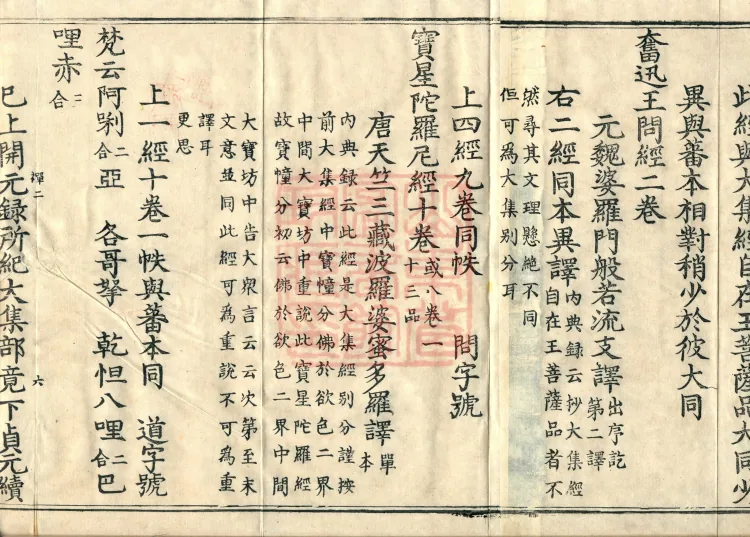 此經與大集經自在王菩薩品大同少
異與蕃本相對稍少於彼大同
奮迅王問經二卷
元魏婆羅門般若流支譯出序訖
第二譯
右二經同本異譯內典録云抄大集經
自在王菩薩品者不
然尋其文理懸絶不同
但可為大集别分耳
上四經九卷同帙 問字號
寶星陀羅尼經十卷或八卷一
十三品
唐天竺三藏波羅婆蜜多羅譯單
本
内典録云此經是大集經别分謹按
前大集經中寳幢分佛於欲色二界
中間大寶坊中重說此寶星陀羅經
故寳幢分初云佛於欲色二界中間
大寶坊中告大衆言云云次第至末
文意並同此經可為重說不可為重
譯耳
更思
上一經十卷一帙與蕃本同 道字號
梵云阿㗚二合亞 各哥拏 乾怛八哩二合巴
哩赤二合
巳上開元録所紀大集部竟下貞元續
譚二
六